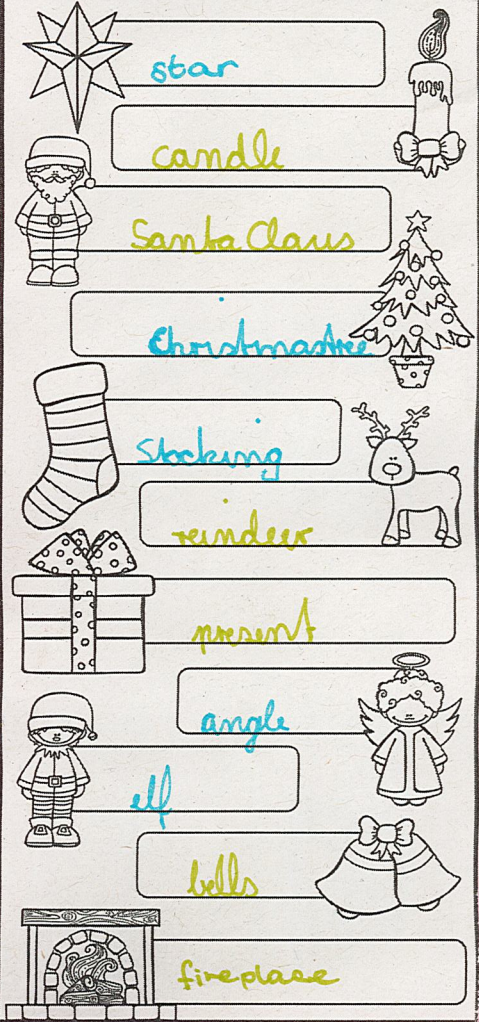 star
candle
Santa Claus
Christmastree
Stocking
reindeer
present
angle
elf
bells
fireplase